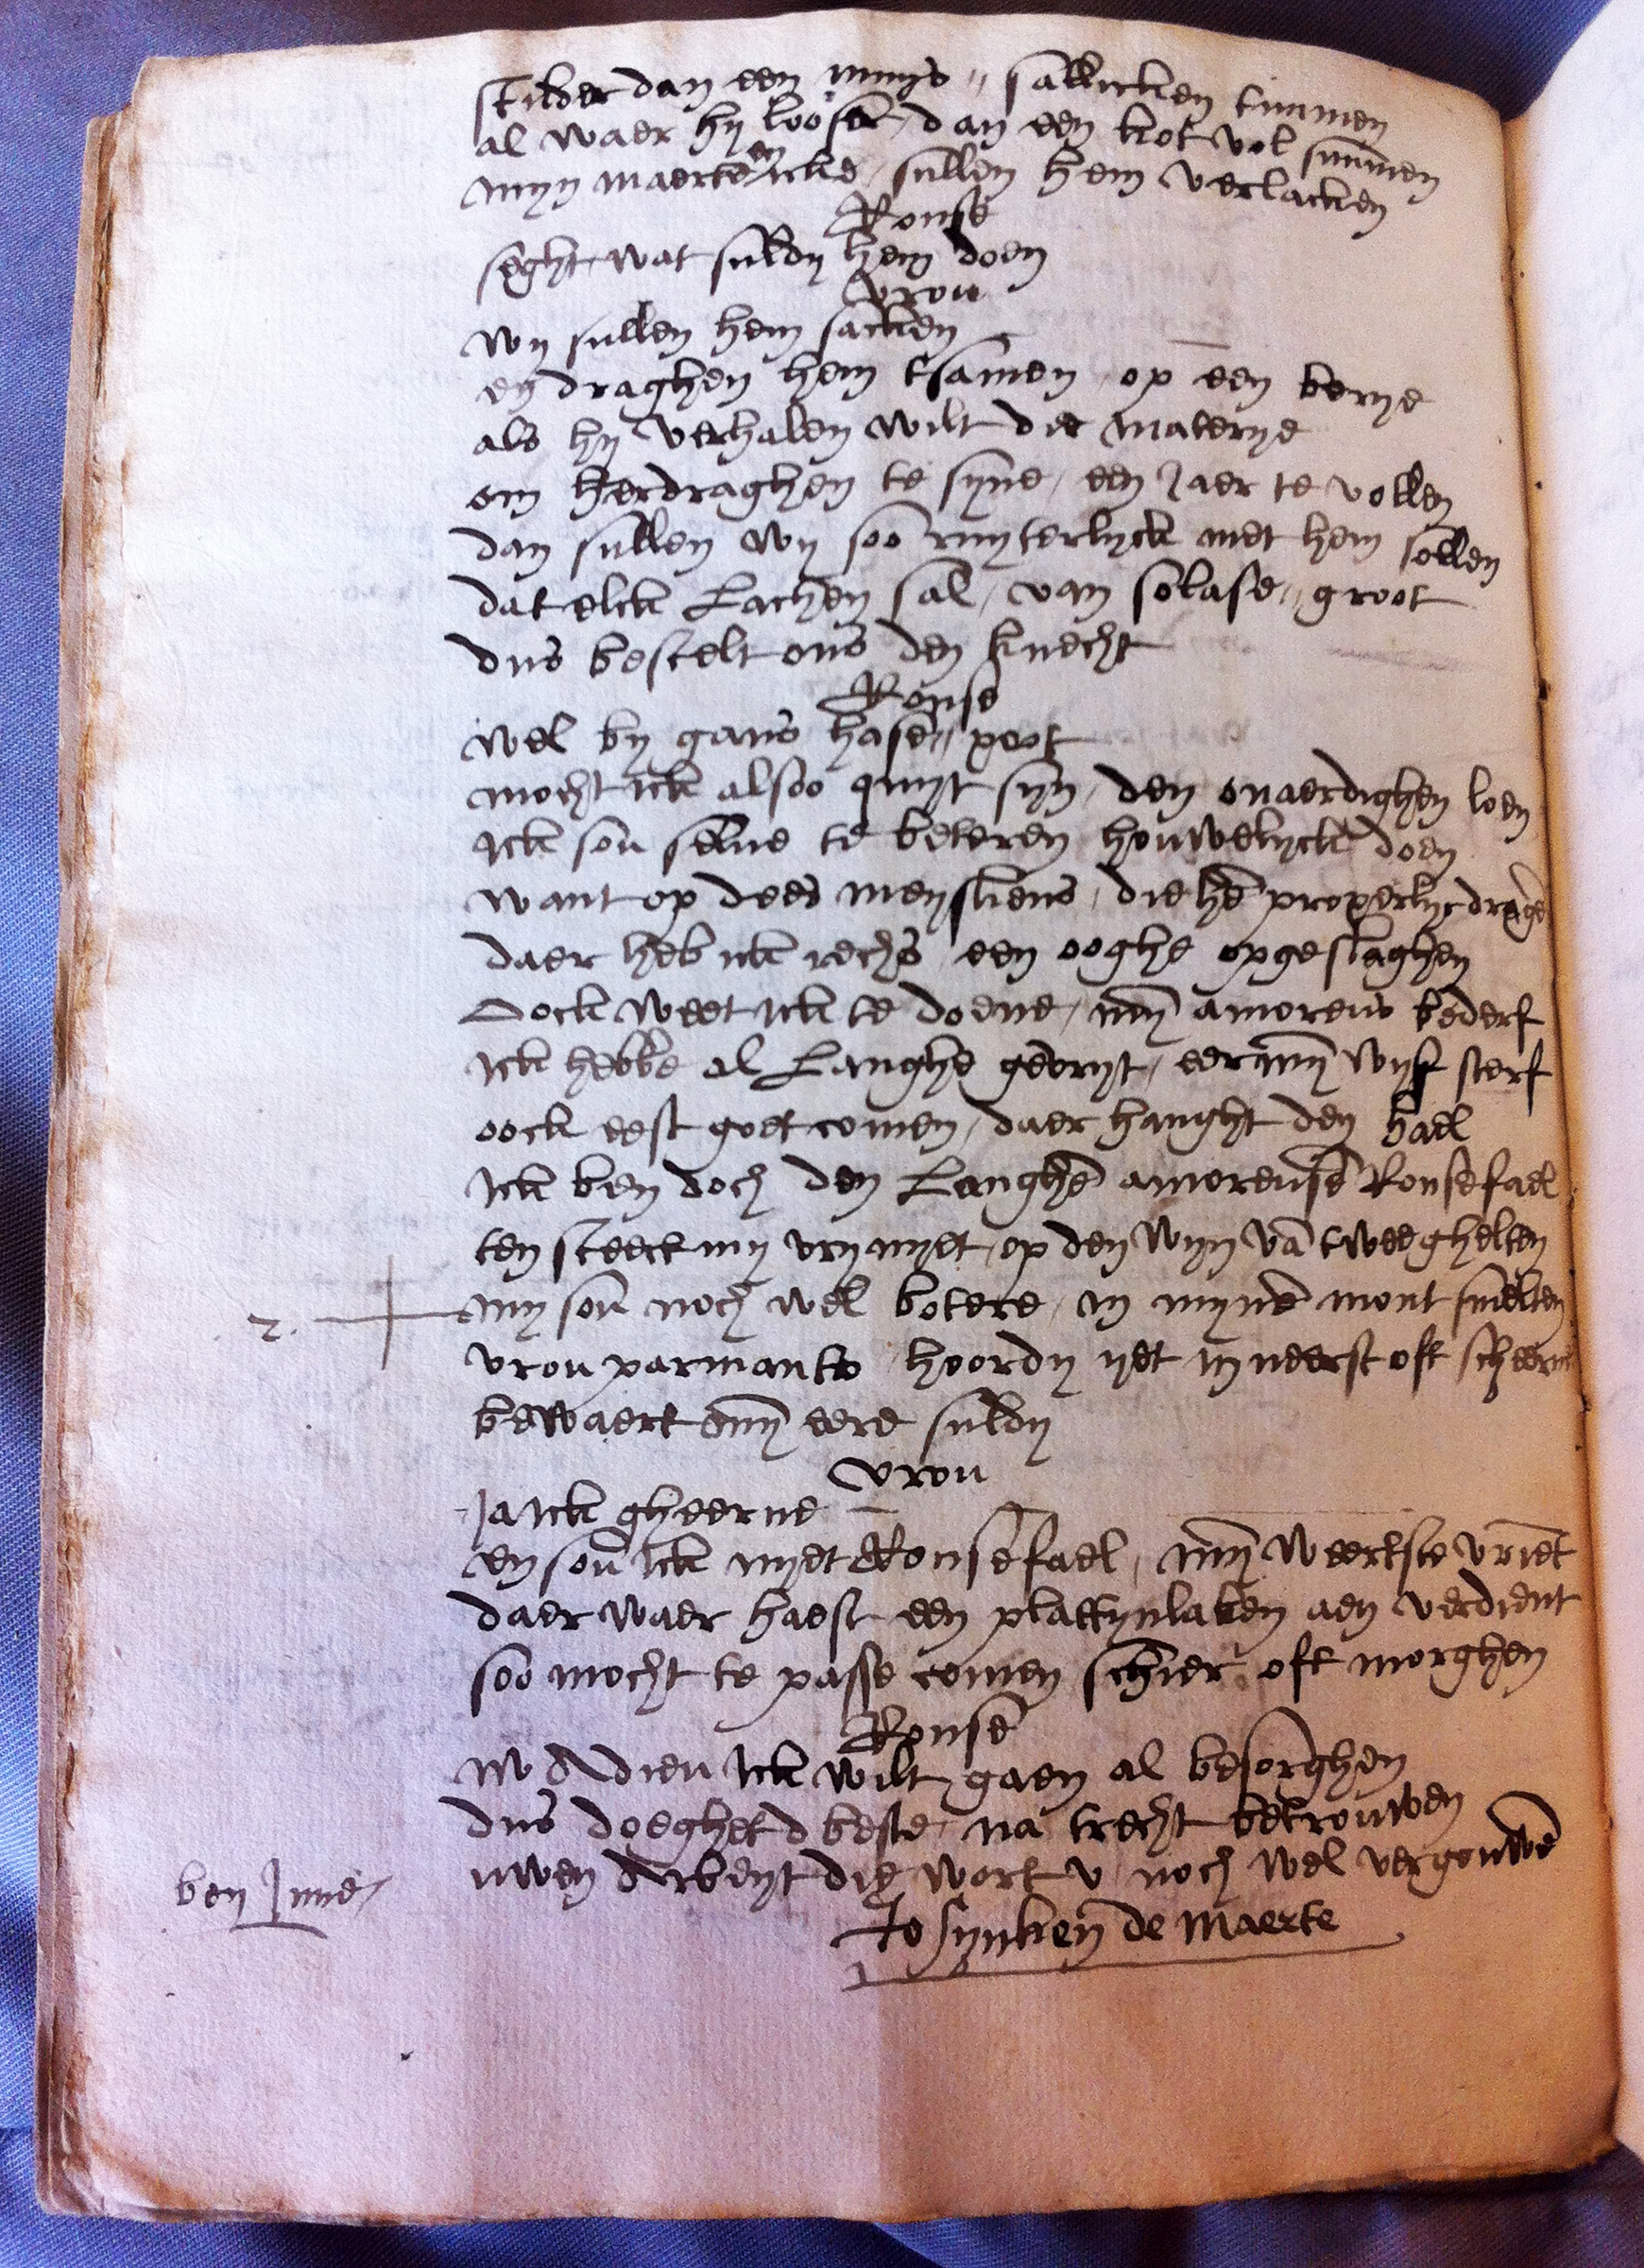 stilder dan een muijs // sallicken temmen
al waer hy looser, dan een kot vol simmen
myn maerte en icke, sullen hem verlacken
Ronse
seght, wat suldy hem doen
vrou
wy sullen hem sacken
en draghen hem tsamen, op een berye
als hy verhalen wilt die materye
om herdraghen te syne, een Jaer te vollen
dan sullen wy soo ruyterlyck met hem sollen
dat elck Lachen sal, van solase // groot
dus bestelt ons den knecht
Ronse
wel by gans hase // poot
mocht ick alsoo quyt syn, den onaerdighen loen
Ick sou selue te beteren houwelycke doen
want op dees meyskens, die hē properlyc dragē
daer heb ick rechs een ooghe opgeslaghen
Oock weet ick te doene, mijn amoreus bederf
Ick hebbe al Langhe gevryt, eer mijn wyf sterf
oock eest goet comen, daer hanght den hael
Ick ben doch den Langhē amoreusē Ronsefael
ten steeckt my vry nyet, op den wyn vā twee ghelten
my sou noch wel botere, in mynē mont smelten
vrou parmants hoordy yet in neerst oft scheerne
bewaert mijn eere suldy
vrou
Ja ick gheerne
en sou ick nyet Ronsefael, mijn weertste vrient
daer waer haest een plattynlaken aen verdient
soo mocht te passe comen schier oft morghen
Ronse
nv Adieu Ick wilt gaen al besorghen
dus doeghet d beste, na trecht betrouwen
uwen Arbeyt die wort v noch wel vergouwē
bon Jnne
Josynken de Maerte